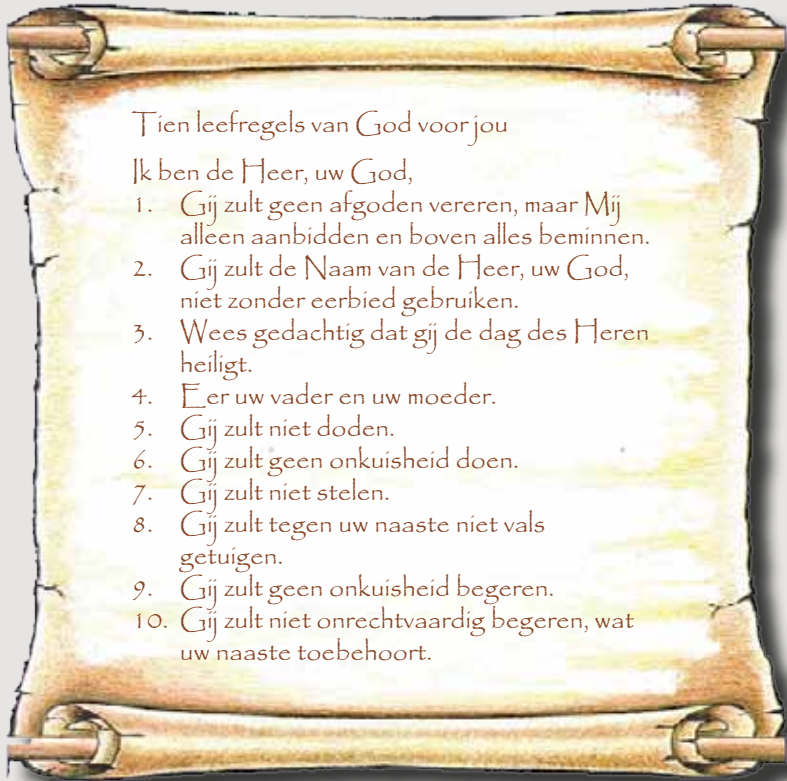 Tien leefregels van God voor jou
Ik ben de Heer, uw God,
1. Gij zult geen afgoden vereren, maar Mij
alleen aanbidden en boven alles beminnen.
2. Gij zult de Naam van de Heer, uw God,
niet zonder eerbied gebruiken.
3. Wees gedachtig dat gij de dag des Heren
heiligt.
4. Eer uw vader en uw moeder.
5. Gij zult niet doden.
6. Gij zult geen onkuisheid doen.
7. Gij zult niet stelen.
8. Gij zult tegen uw naaste niet vals
getuigen.
9. Gij zult geen onkuisheid begeren.
10. Gij zult niet onrechtvaardig begeren, wat
uw naaste toebehoort.